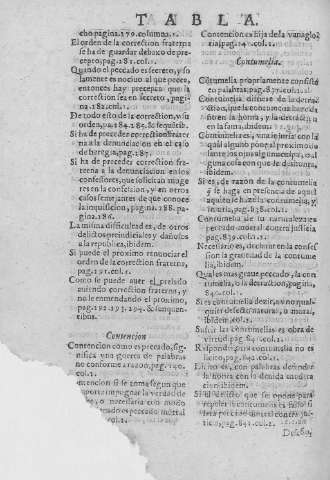 TABLA.
cho pagina.179.columna.1.
El orden de la correction fraterna
se ha de guardar debaxo de pre-
cepto, pag.181.col.1.
Quando el peccado es secreto, y so-
lamente es nociuo al que peco,
entonces hay precepto que la
correction sea en secreto, pagi-
na.182.col.1.
De todo esto de la correction, y su
orden, pa.184.185. &
Si ha de preceder correction frater
na a la denunciacion en el caso
de heregia, pag.187.
Si ha de preceder correction fra-
terna a la denunciacion en los
confessores, que solicitan muge
res en la confession, y en otros
casos semejantes de que conoce
la inquisicion, pagina.188. pa-
gina.186.
La misma difficultad es, de otros
delictos prejudiciales y dañosos
a la republica, ibidem.
Si puede el proximo renunciar el
orden de la correction fraterna,
pag.191.col.1.
Como se puede auer el prelado
auiendo correction fraterna, y
no le enmendando el proximo,
pag.192.193.194. & sequen-
tibus.
Contencion
Contencion como es peccado, sig-
nifica vna guerra de palabras
no conforme a razon, pag.140.
col.1.
Contencion si se toma segun que
importa impugnar la verdad de
o necessaria
es peccado mortal
col.1.
Contencion es hija de la vanaglo
ria, pag.141.col.1.
Contumelia.
Contumelia propriamente consiste
en palabras, pag.837.col.1.
Contumelia differencia de la detra-
ction, que la contumelia haze da
ño en la honra, y la detraction
en la fama, ibidem.
Contumelia es, vna injuria con la
qual alguno pone al proximo
en alguna culpa, o al
guna cosa con que se disminuya,
ibidem.
Si es, de razon de la contumelia
que se haga en presencia de aquel
a quien se haze la contumelia, y
injuria, pag.838.col.1.
Contumelia de su naturaleza es
peccado mortal contra justicia
pag.839.col.1.
Necessario es, declarar en la confes
sion la grauedad de la contume
lia, ibidem.
Qual es mas graue peccado, la con
tumelia, o la detraction, pagina,
840.col.1.
Si es contumelia dezir, a vno qual-
quier defecto natural, o moral,
ibidem.
Sufrir las contumelias es obra de
virtud pag.840.col.1.
Respondiendo contumelia no es
licito, pag.840.col.1.
Licito es, con palabras defender
la honra con la deuida modera
cion ibidem.
Si el delicto que se opone para
repeler la contumelia es falso si
sera peccado mortal contra jus-
ticia, pag.841.col.1.